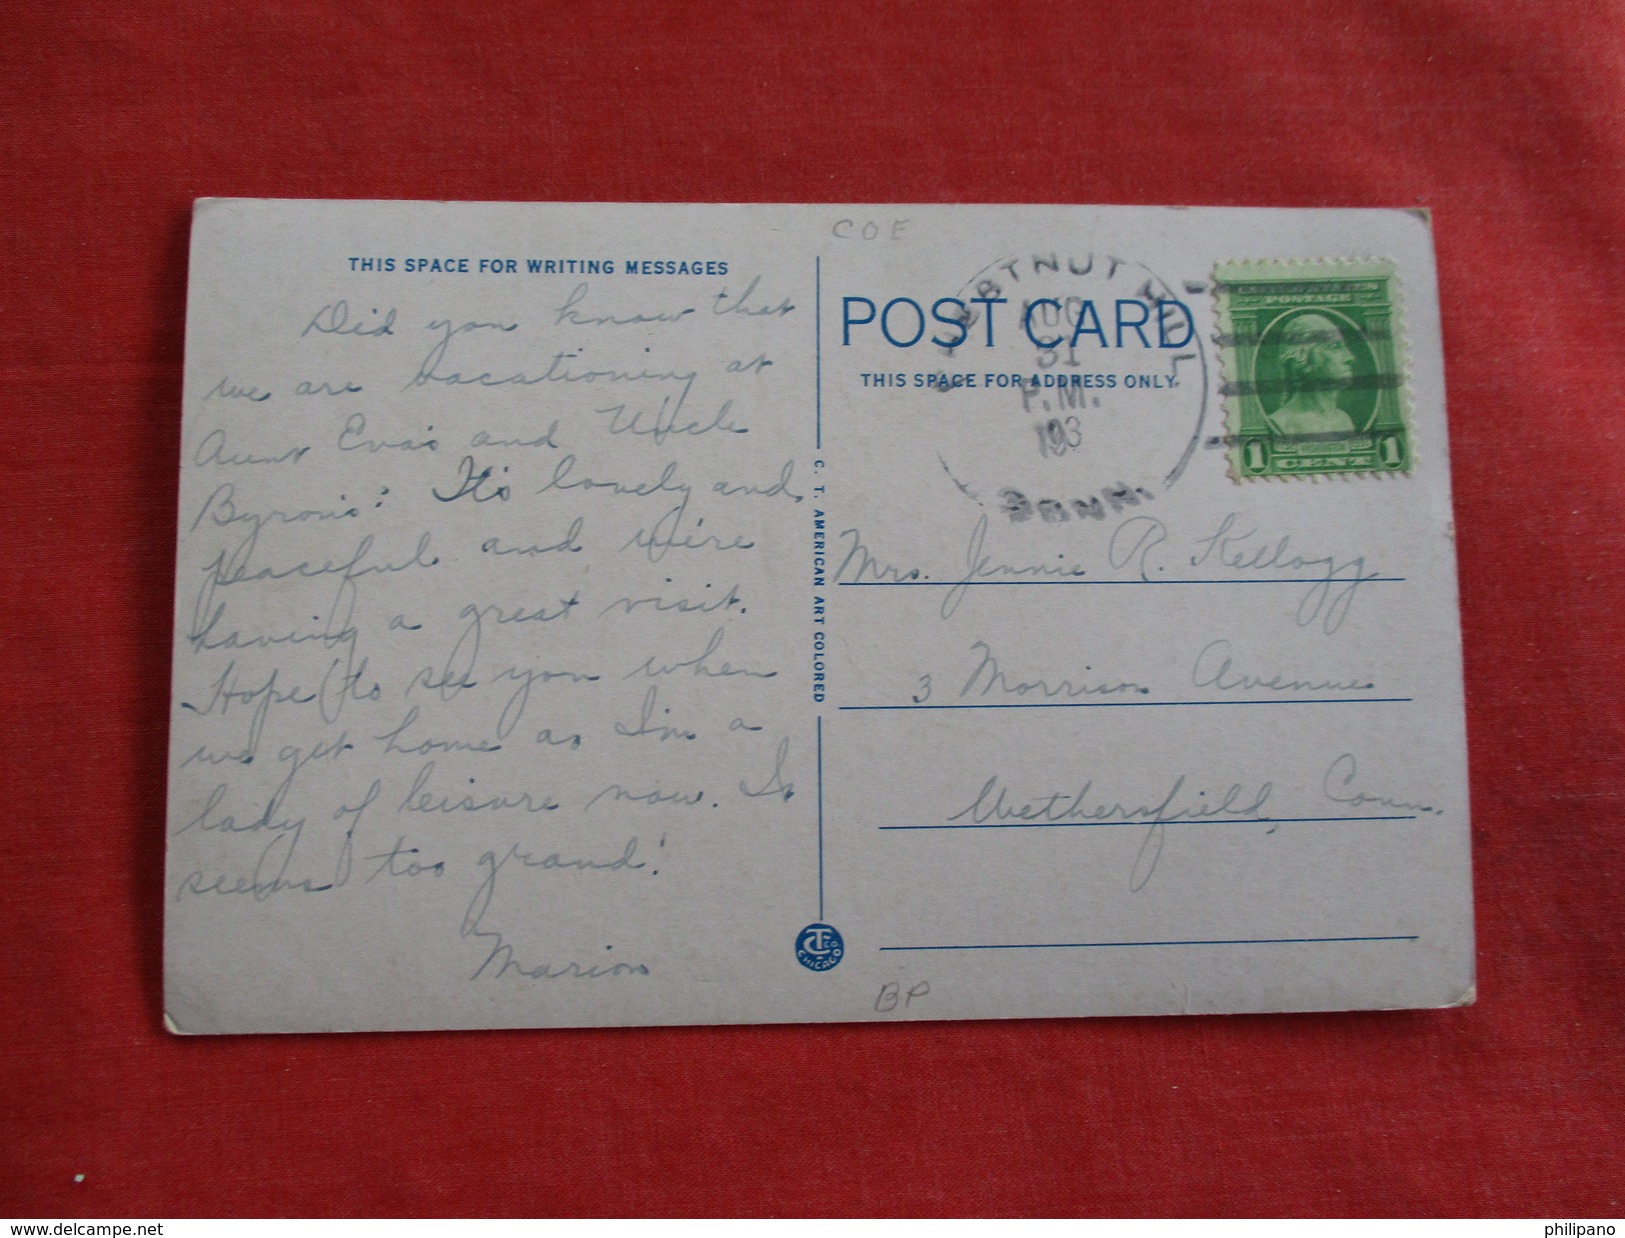 COE
THIS SPACE FOR WRITING MESSAGES
Did you know that
we are vacationing at
Aunt Eva's and Uncle
Byron's? It's lovely and
peaceful and we're
having a great visit.
Hope to see you when
we get home as I'm a
lady of leisure now. It
seems too grand!
Marion
C. T. AMERICAN ART COLORED
CT CO
CHICAGO
POST CARD
THIS SPACE FOR ADDRESS ONLY
CHESTNUT HILL
AUG
31
P.M.
193
CONN.
UNITED STATES
POSTAGE
1 CENT 1
Mrs. Jennie R. Kellogg
3 Morrison Avenue
Wethersfield, Conn.
BP
http://www.delcampe.net
philipano